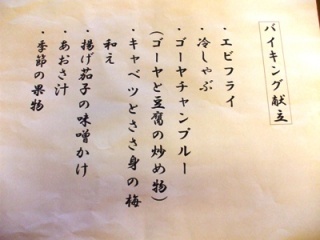 バイキング献立
・エビフライ
・冷しゃぶ
・ゴーヤチャンプルー
(ゴーヤと豆腐の炒め物)
・キャベツとささ身の梅
和え
・揚げ茄子の味噌かけ
・あおさ汁
・季節の果物